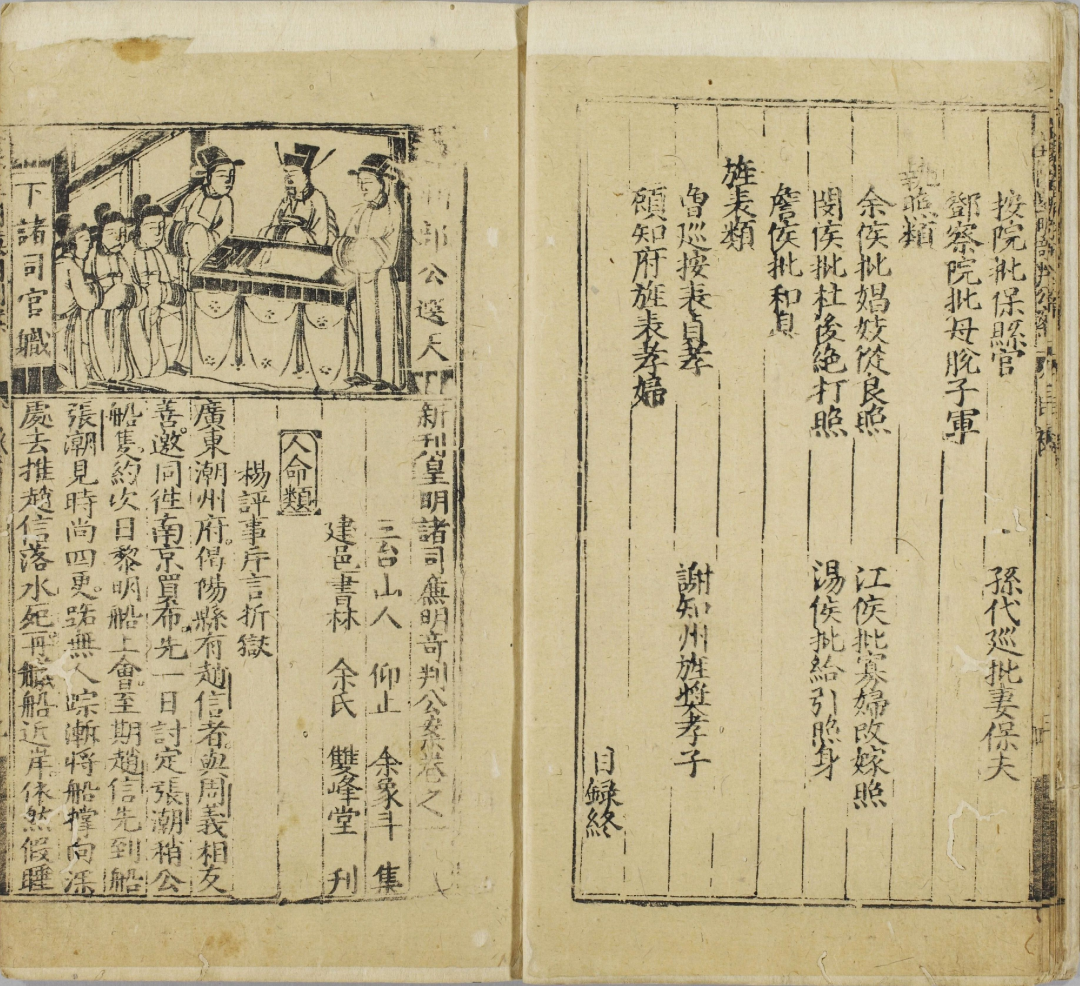 按院批保縣官
孫代巡批妻保夫
鄧察院批母脫子軍
執照類
余侯批娼妓從良照
江侯批寡婦改嫁照
閔侯批杜後絕打照
湯侯批給引照身
詹侯批和息
旌表類
曾巡按表貞孝
謝知州旌獎孝子
顧知府旌表孝婦
目録終
部公選天
下諸司官職
新刊皇明諸司廉明奇判公案卷之一
三台山人 仰止 余象斗 集
建邑書林 余氏 雙峰堂 刊
人命類
楊評事片言折獄
廣東潮州府揭陽縣有趙信者與周義相友
善邀同徃南京買布先一日討定張潮稍公
船隻約次日黎明船上會至期趙信先到船
張潮見時尚四更路無人踪漸將船撐向深
處去推趙信落水死再艤船近岸依然假睡